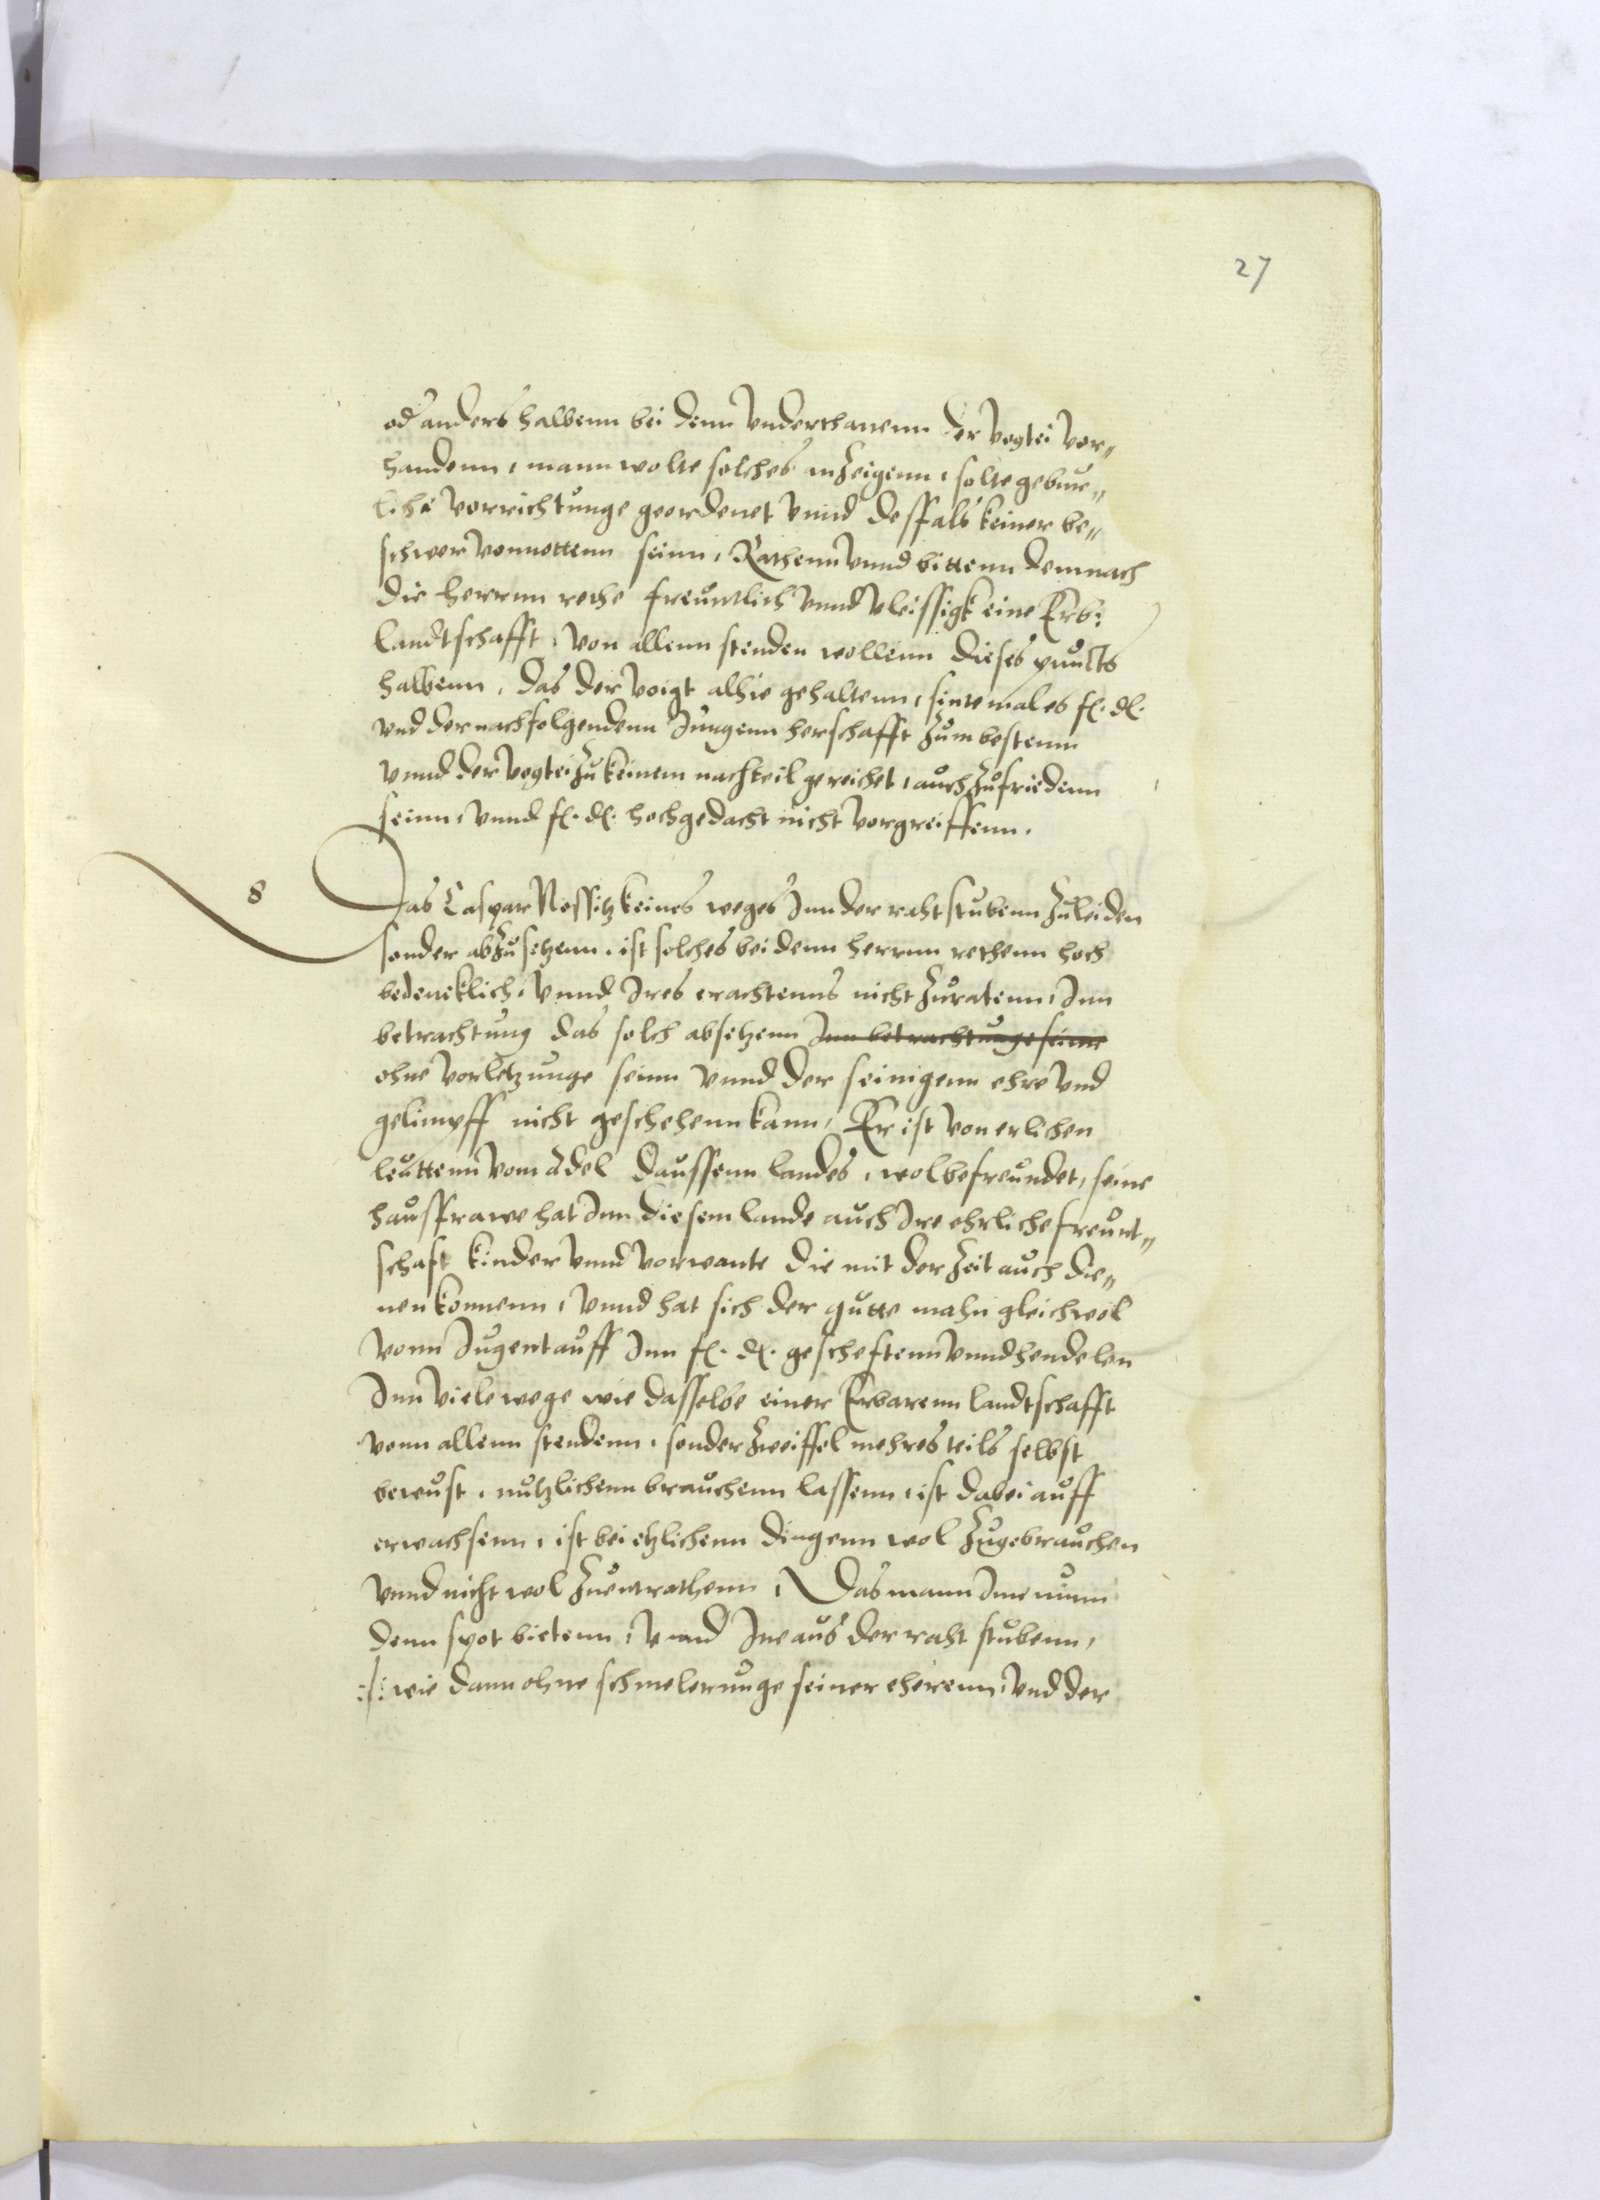 27
od anders halbenn bei denn vnderthanenn der Vogtei vor„
handenn, mann wolte solches anzeigenn, solte gebure„
liche vorrichtunge geordenet vnnd desfals keiner be„
schwer vonnottenn seinn, Rathenn vnnd bittenn demnach
die herrnn rethe freuntlich vnnd vleissigk eine Erb:
landtschafft, von allenn stenden wollenn dieses puncts
halbenn, das der Voigt alhie gehaltenn, sintemal es f. d.
vnd der nachfolgendenn Jungenn herschafft zum bestenn
vnnd der Vogtei zu keinem nachteil gereichet, auch zufriedenn
seinn, vnnd f. d. hochgedacht nicht vorgreiffenn.
8 Das Caspar Nossitz keines weges Inn der rahtstubenn zuleiden
sonder abzusetzenn, ist solches bei denn herrnn rethenn hoch
bedencklich, vnnd Ires erachtenns nicht zuratenn, Inn
betrachtung das solch absetzenn Inn betrachtunge seine
ohne vorletzunge seinn vnnd der seinigenn ehre vnd
gelimpff nicht geschehenn kann, Er ist von erlichen
leuttenn vom Adel daussenn landes, wolbefreundet, seine
hausfrawe hat Inn diesem lande auch Ire ehrliche freunt„
schaft kinder vnnd vorwante die mit der zeit auch die„
nen konnenn, vnnd hat sich der gutte mahn gleichwol
vonn Jugent auff Inn f. d. gescheftenn vnnd hendelen
Inn viele wege wie dasselbe einer Erbarenn landtschafft
vonn allenn stendenn, sonder zweiffel mehres teils selbst
bewust, nutzlichenn brauchenn lassenn, ist dabei auff
erwachsenn, ist bei etzlichenn dingenn wol zugebrauchen
vnnd nicht wol zuentrathenn, Das mann Ime nunn
denn spot bietenn, vnnd Ine aus der raht stubenn,
:/: wie dann ohne schmelerunge seiner eherenn, vnd der